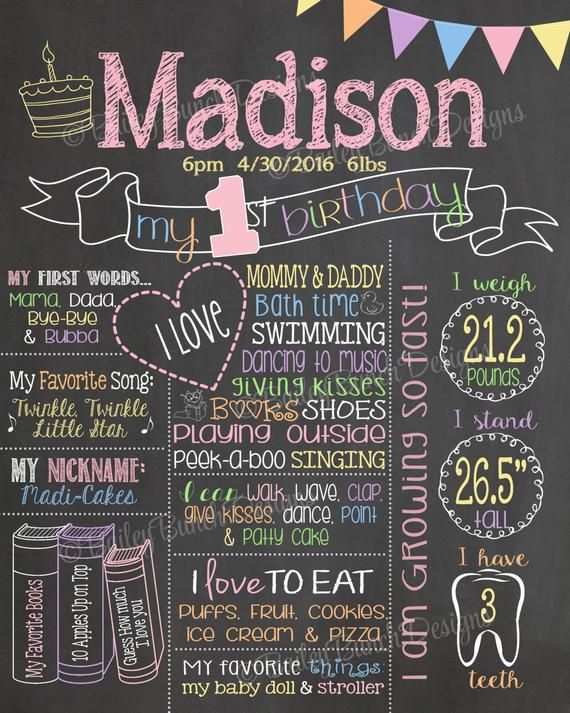 Madison
6pm 4/30/2016 6lbs
my 1st birthday
MY FIRST WORDS...
Mama, Dada,
Bye-Bye
& Bubba
My Favorite Song:
Twinkle, Twinkle
Little Star
MY NICKNAME:
Madi-Cakes
My Favorite Books
10 Apples Up on Top
Guess How much
I love you
I LOVE
MOMMY & DADDY
Bath time
SWIMMING
Dancing to music
giving kisses
BOOKS SHOES
Playing outside
Peek-a-boo SINGING
I can walk, wave, clap,
give kisses, dance, point
& Patty cake
I love TO EAT
Puffs, Fruit, Cookies
Ice cream & Pizza
My favorite things:
my baby doll & stroller
I am Growing so fast!
I weigh
21.2
Pounds
I stand
26.5"
tall
I have
3
teeth
©BaileyBunchDesigns
©BaileyBunchDesigns
©BaileyBunchDesigns
©BaileyBunchDesigns